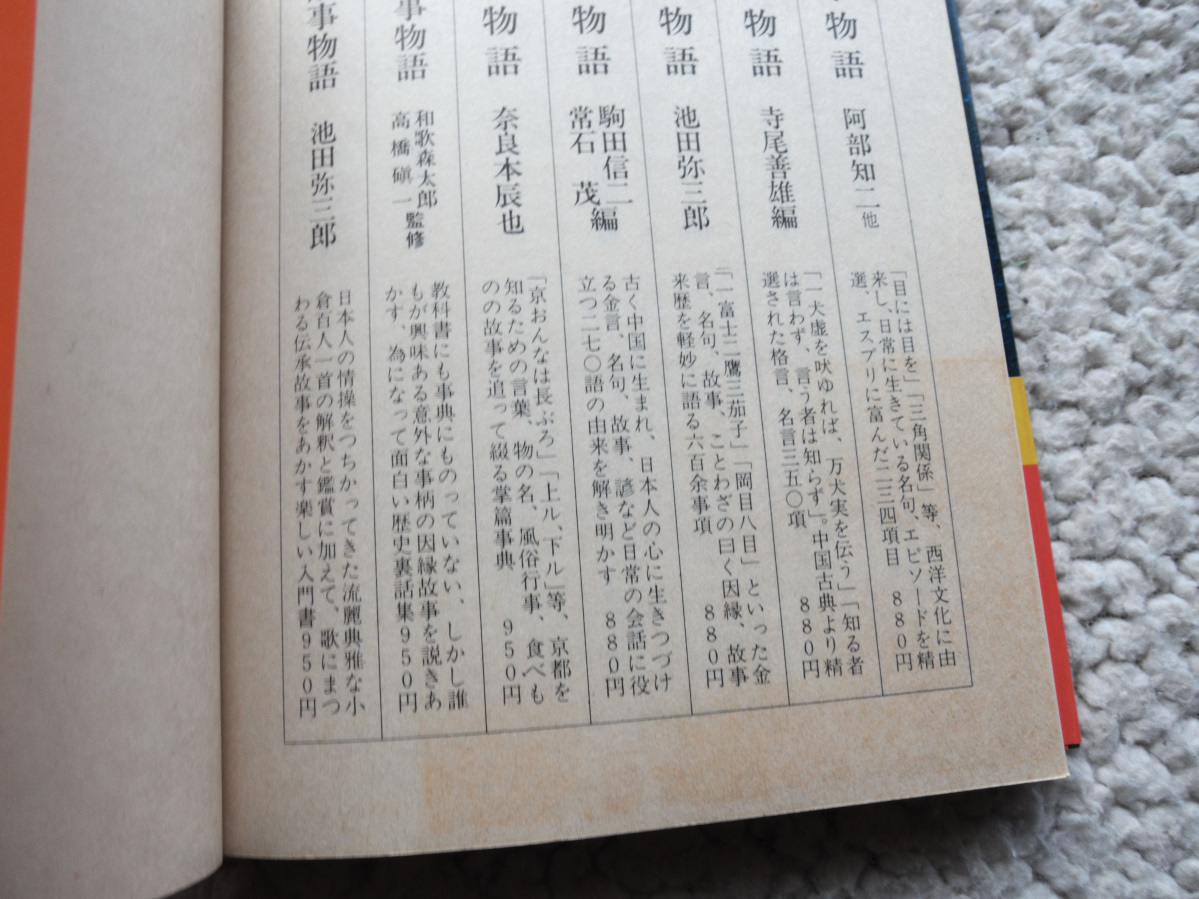 物語
阿部知二他
「目には目を」「三角関係」等、西洋文化に由
来し、日常に生きている名句、エピソードを精
選、エスプリに富んだ二三四項目 880円
物語
寺尾善雄編
「一犬虚を吠ゆれば、万犬実を伝う」「知る者
は言わず、言う者は知らず」。中国古典より精
選された格言、名言三五〇項 880円
物語
池田弥三郎
「一富士二鷹三茄子」「岡目八目」といった金
言、名句、故事、ことわざの曰く因縁、故事
来歴を軽妙に語る六百余事項 880円
物語
駒田信二
常石 茂編
古く中国に生まれ、日本人の心に生きつづけ
る金言、名句、故事、諺など日常の会話に役
立つ二七〇語の由来を解き明かす 880円
物語
奈良本辰也
「京おんなは長ぶろ」「上ル、下ル」等、京都を
知るための言葉、物の名、風俗行事、食べも
のの故事を追って綴る掌篇事典 950円
事物語
和歌森太郎
高橋磌一監修
教科書にも事典にものっていない、しかし誰
もが興味ある意外な事柄の因縁故事を説きあ
かす、為になって面白い歴史裏話集950円
事物語
池田弥三郎
日本人の情操をつちかってきた流麗典雅な小
倉百人一首の解釈と鑑賞に加えて、歌にまつ
わる伝承故事をあかす楽しい入門書950円